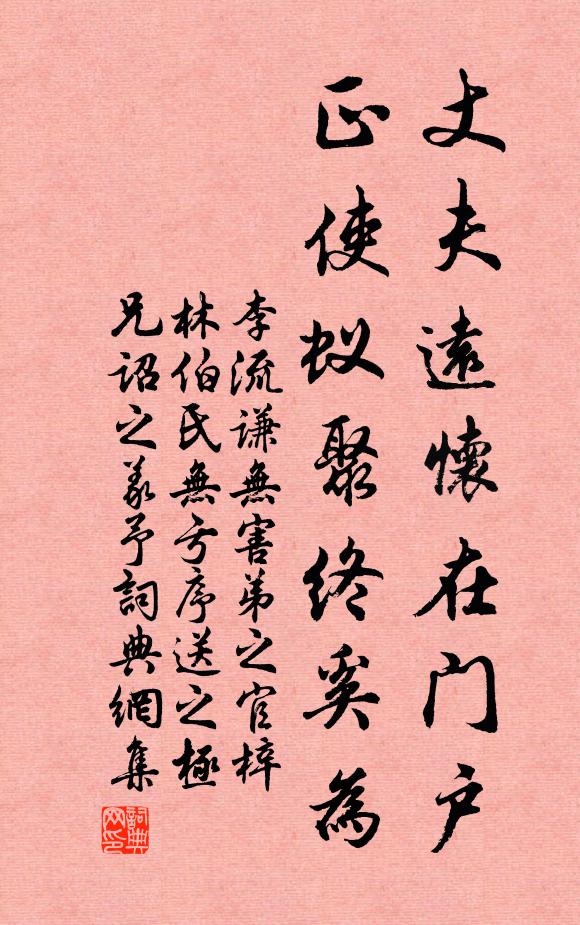 丈夫遠懷在門户
正使蚁聚终奚為
李流谦無害弟之官梓
林伯民無亏序送之極
兄诏之義予詞典網集
詞典网印